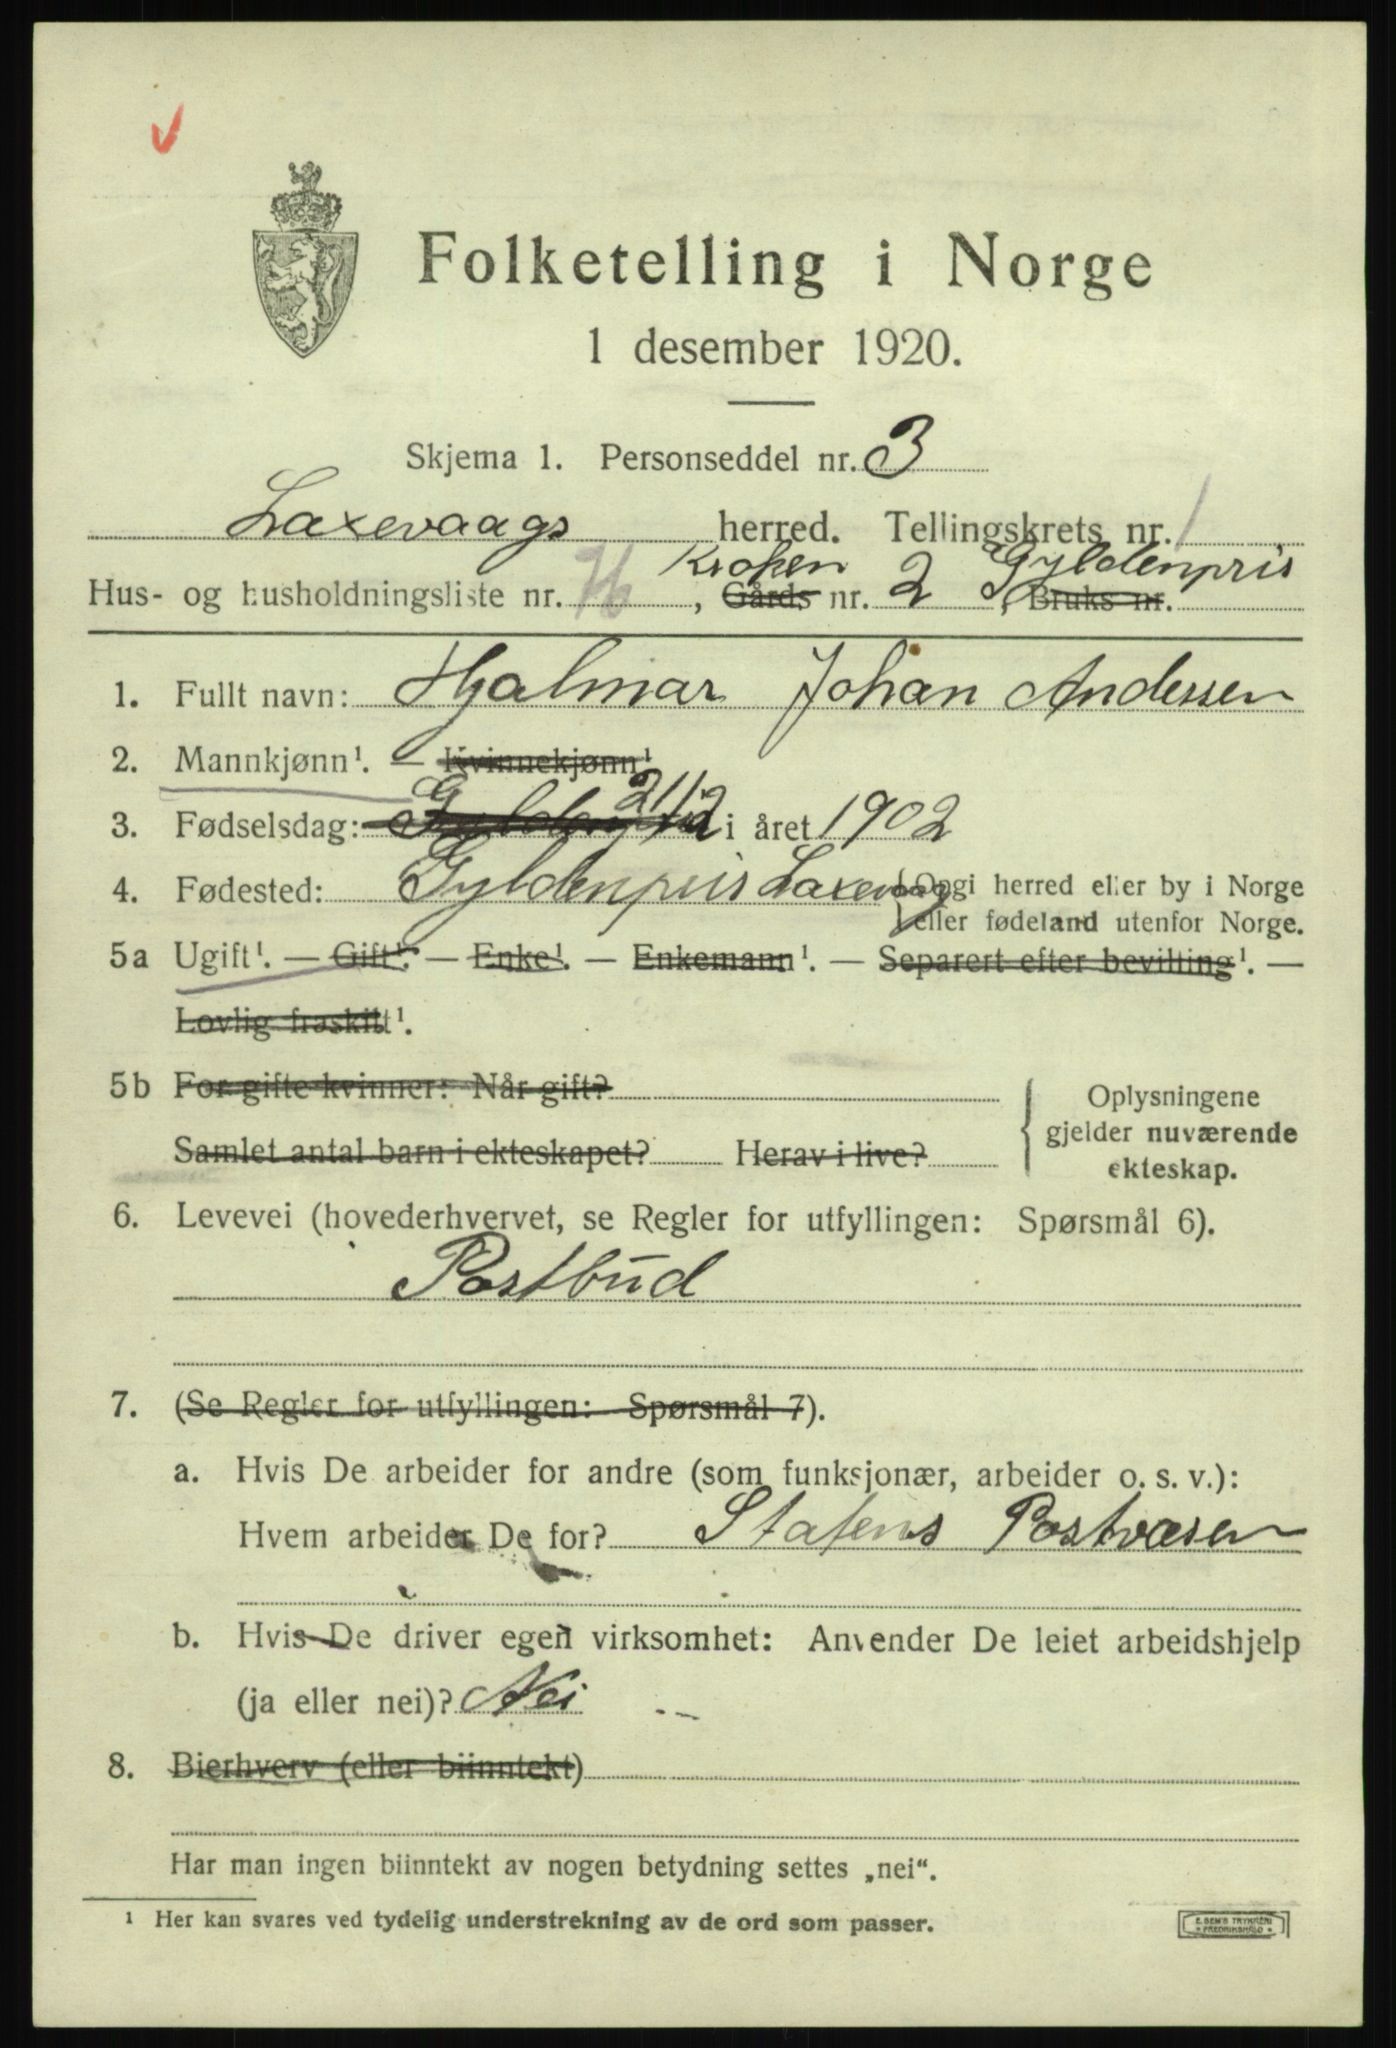 Folketelling i Norge
1 desember 1920.
Skjema 1. Personseddel nr. 3
Laxevaags herred. Tellingskrets nr. 1
Kroken Gyldenpris
Hus- og husholdningsliste nr. 76, Gårds nr. 2, Bruks nr.
1. Fullt navn: Hjalmar Johan Andersen
2. Mannkjønn¹. — Kvinnekjønn¹
3. Fødselsdag: Gyldenpris 21/12 i året 1902
4. Fødested: Gyldenpris Laxevaag (Opgi herred eller by i Norge
eller fødeland utenfor Norge.
5a Ugift¹. — Gift¹. — Enke¹. — Enkemann¹. — Separert efter bevilting¹. —
Lovlig fraskilt¹.
5b For gifte kvinner: Når gift?
Samlet antal barn i ekteskapet? Herav i live?
Oplysningene
gjelder nuværende
ekteskap.
6. Levevei (hovederhvervet, se Regler for utfyllingen: Spørsmål 6).
Postbud
7. (Se Regler for utfyllingen: Spørsmål 7).
a. Hvis De arbeider for andre (som funksjonær, arbeider o. s. v.):
Hvem arbeider De for? Statens Postvæsen
b. Hvis De driver egen virksomhet: Anvender De leiet arbeidshjelp
(ja eller nei)? Nei
8. Bierhverv (eller biinntekt)
Har man ingen biinntekt av nogen betydning settes „nei“.
¹ Her kan svares ved tydelig understrekning av de ord som passer.
E. SEM'S TRYKKERI
FREDRIKSHALD